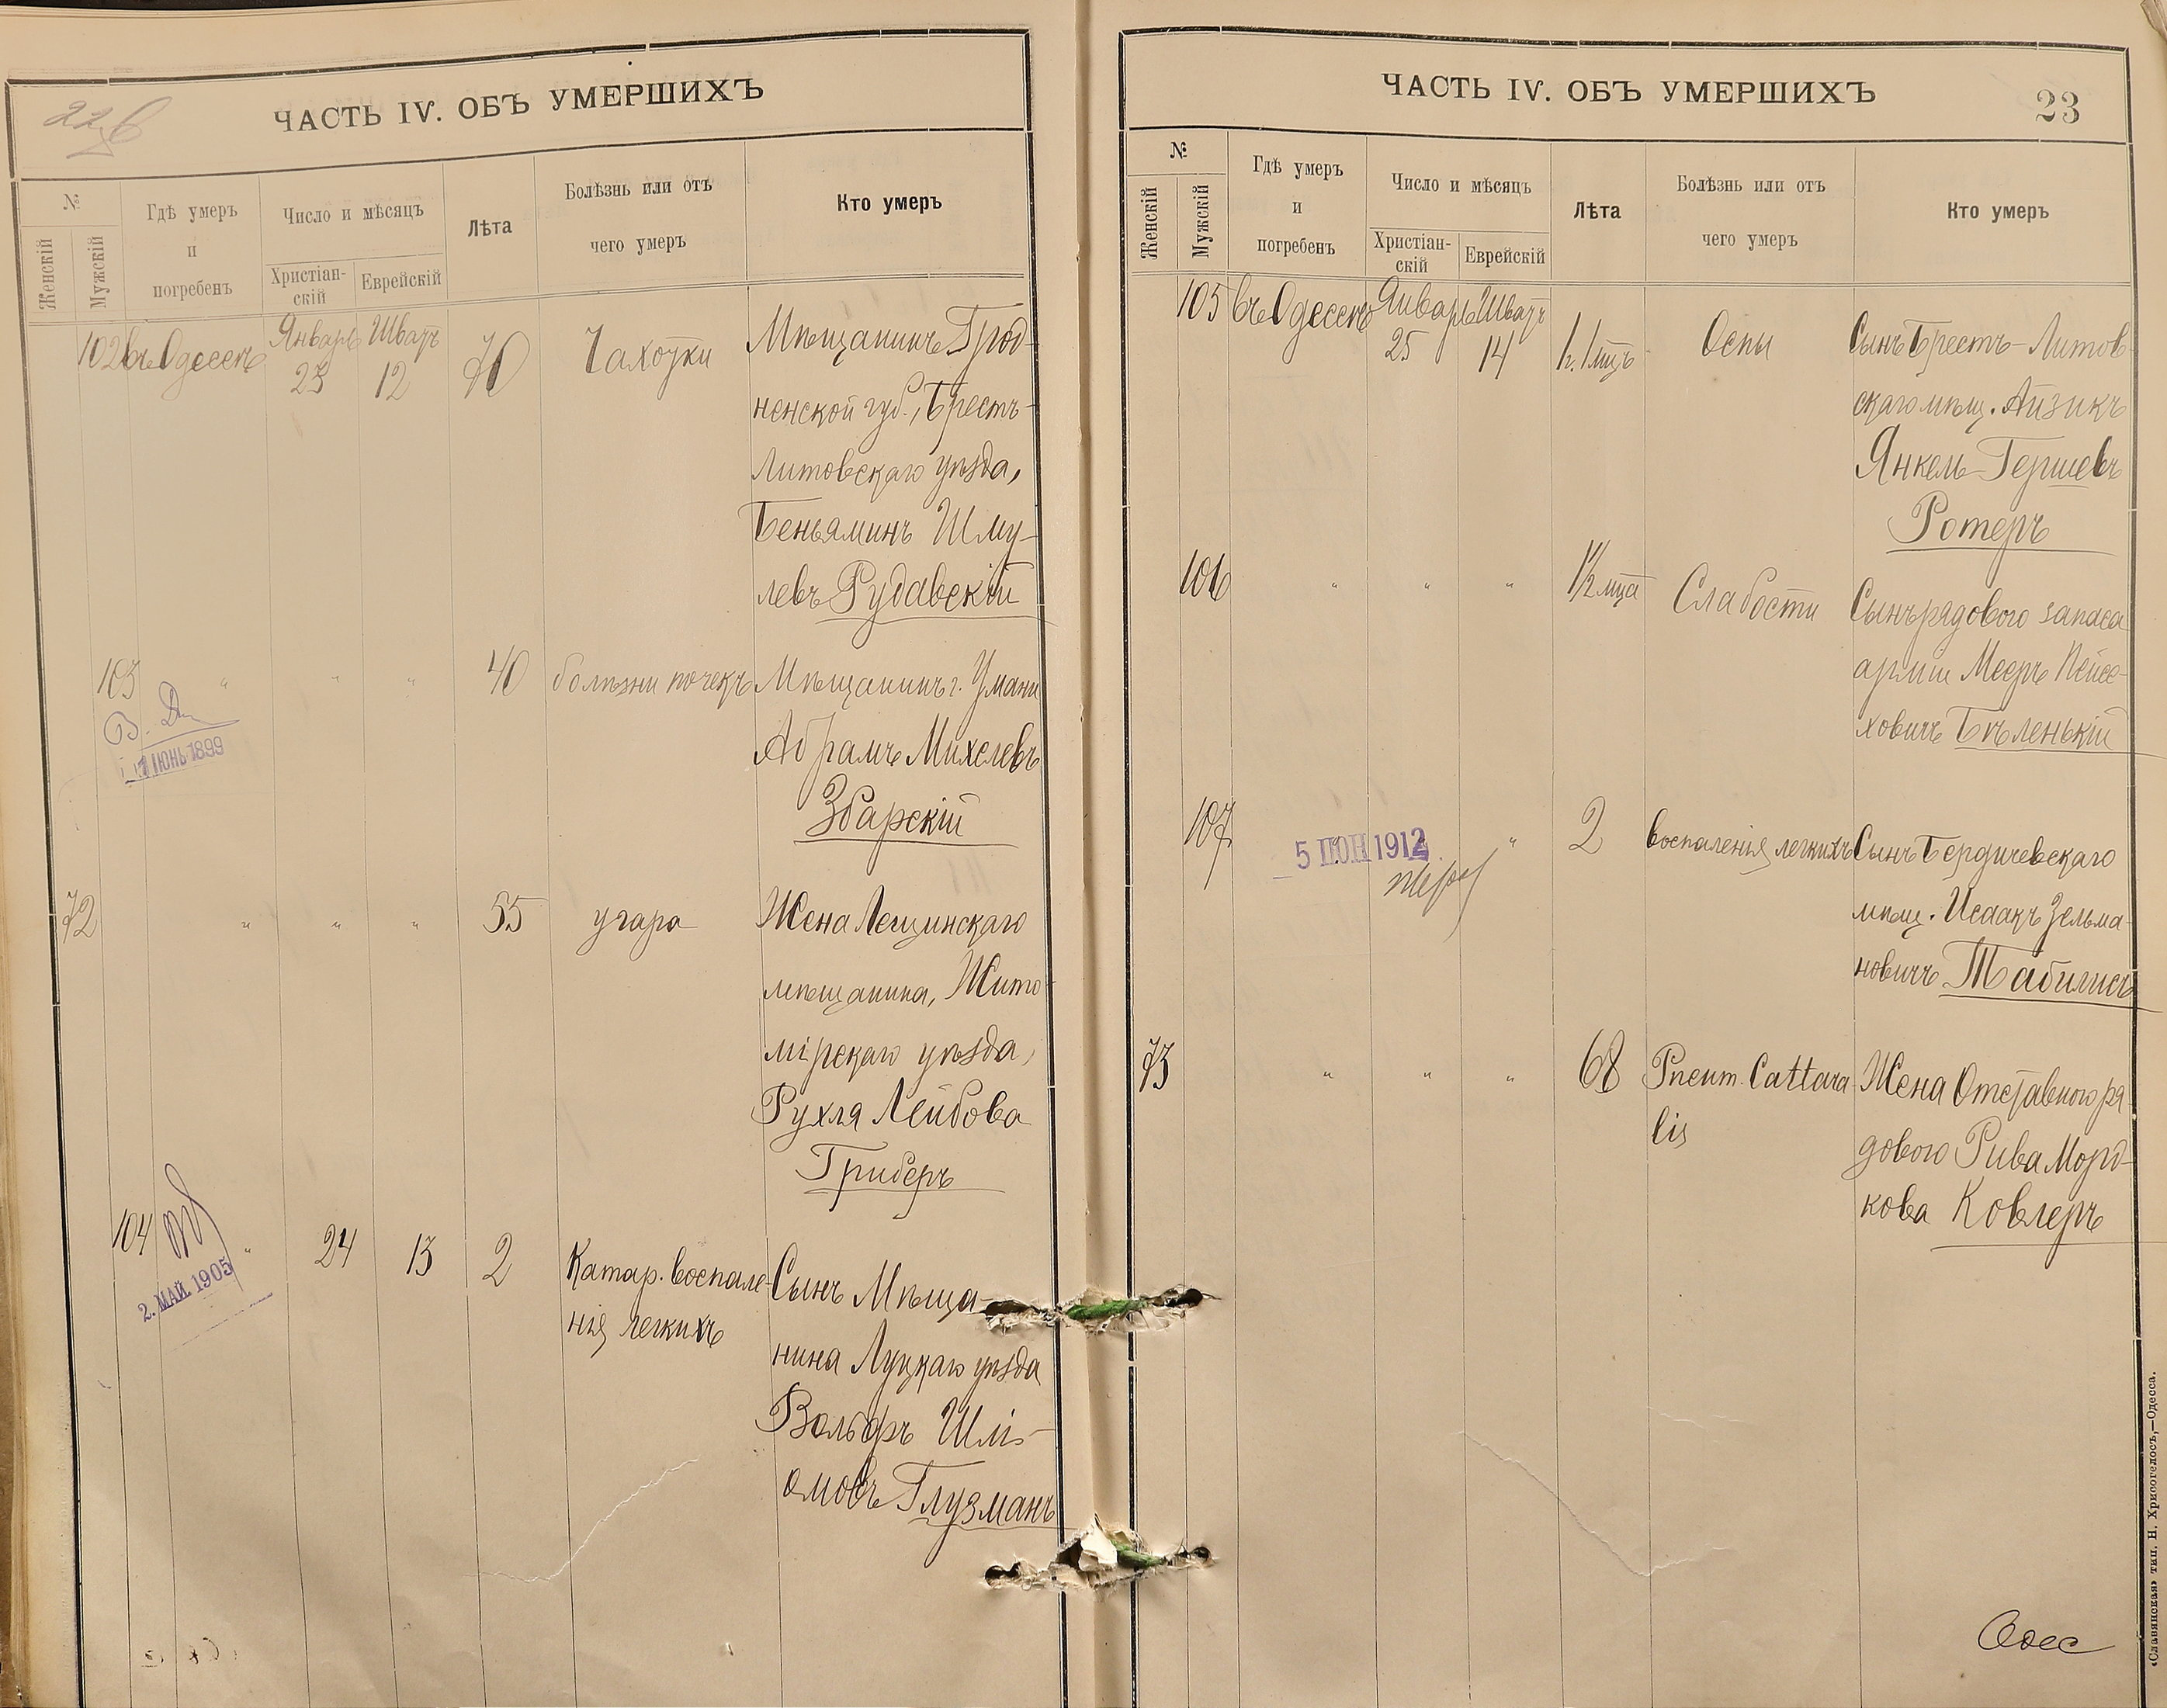 22 б
ЧАСТЬ IV. ОБЪ УМЕРШИХЪ
№
Женскій
Мужскій
Гдѣ умеръ
и
погребенъ
Число и мѣсяцъ
Христіан-
скій
Еврейскій
Лѣта
Болѣзнь или отъ
чего умеръ
Кто умеръ
102 въ Одессѣ Январь 23 Шватъ 12 70 Чахотки Мѣщанинъ Грод-
ненской губ., Брестъ-
Литовскаго уѣзда,
Беньяминъ Шму-
левъ Рудавскій
103 " " " 40 болѣзни почекъ Мѣщанинъ г. Умани
Абрамъ Михелевъ
Збарскій
ІЮНЬ 1899
72 " " " 55 угара Жена Лещинскаго
мѣщанина, Жито-
мірскаго уѣзда,
Рухля Лейбова
Гриберъ
104 " 24 13 2 Катар. воспале- Сынъ Мѣща-
нія легкихъ
нина Луцкаго уѣзда
Вольфъ Шлі-
омовъ Глузманъ
2. МАЙ. 1905
ЧАСТЬ IV. ОБЪ УМЕРШИХЪ
23
№
Женскій
Мужскій
Гдѣ умеръ
и
погребенъ
Число и мѣсяцъ
Христіан-
скій
Еврейскій
Лѣта
Болѣзнь или отъ
чего умеръ
Кто умеръ
105 въ Одессѣ Январь 25 Шватъ 14 1 г. 1 мцъ Оспы Сынъ Брестъ-Литов-
скаго мѣщ. Айзикъ
Янкель Гершевъ
Ротеръ
106 " " " 1 1/2 мца Слабости Сынъ рядового запаса
арміи Мееръ Пейсе-
ховичъ Бѣленькій
107 " " " 2 воспаленія легкихъ Сынъ Бердичевскаго
мѣщ. Исаакъ Зельма-
новичъ Табилисъ
5 ІЮН 1912
73 " " " 68 Pneum. Cattara- Жена Отставного ря-
lis
дового Рива Морд-
кова Ковлеръ
Одес
«Славянская» тип. Н. Хрисогелосъ,—Одесса.